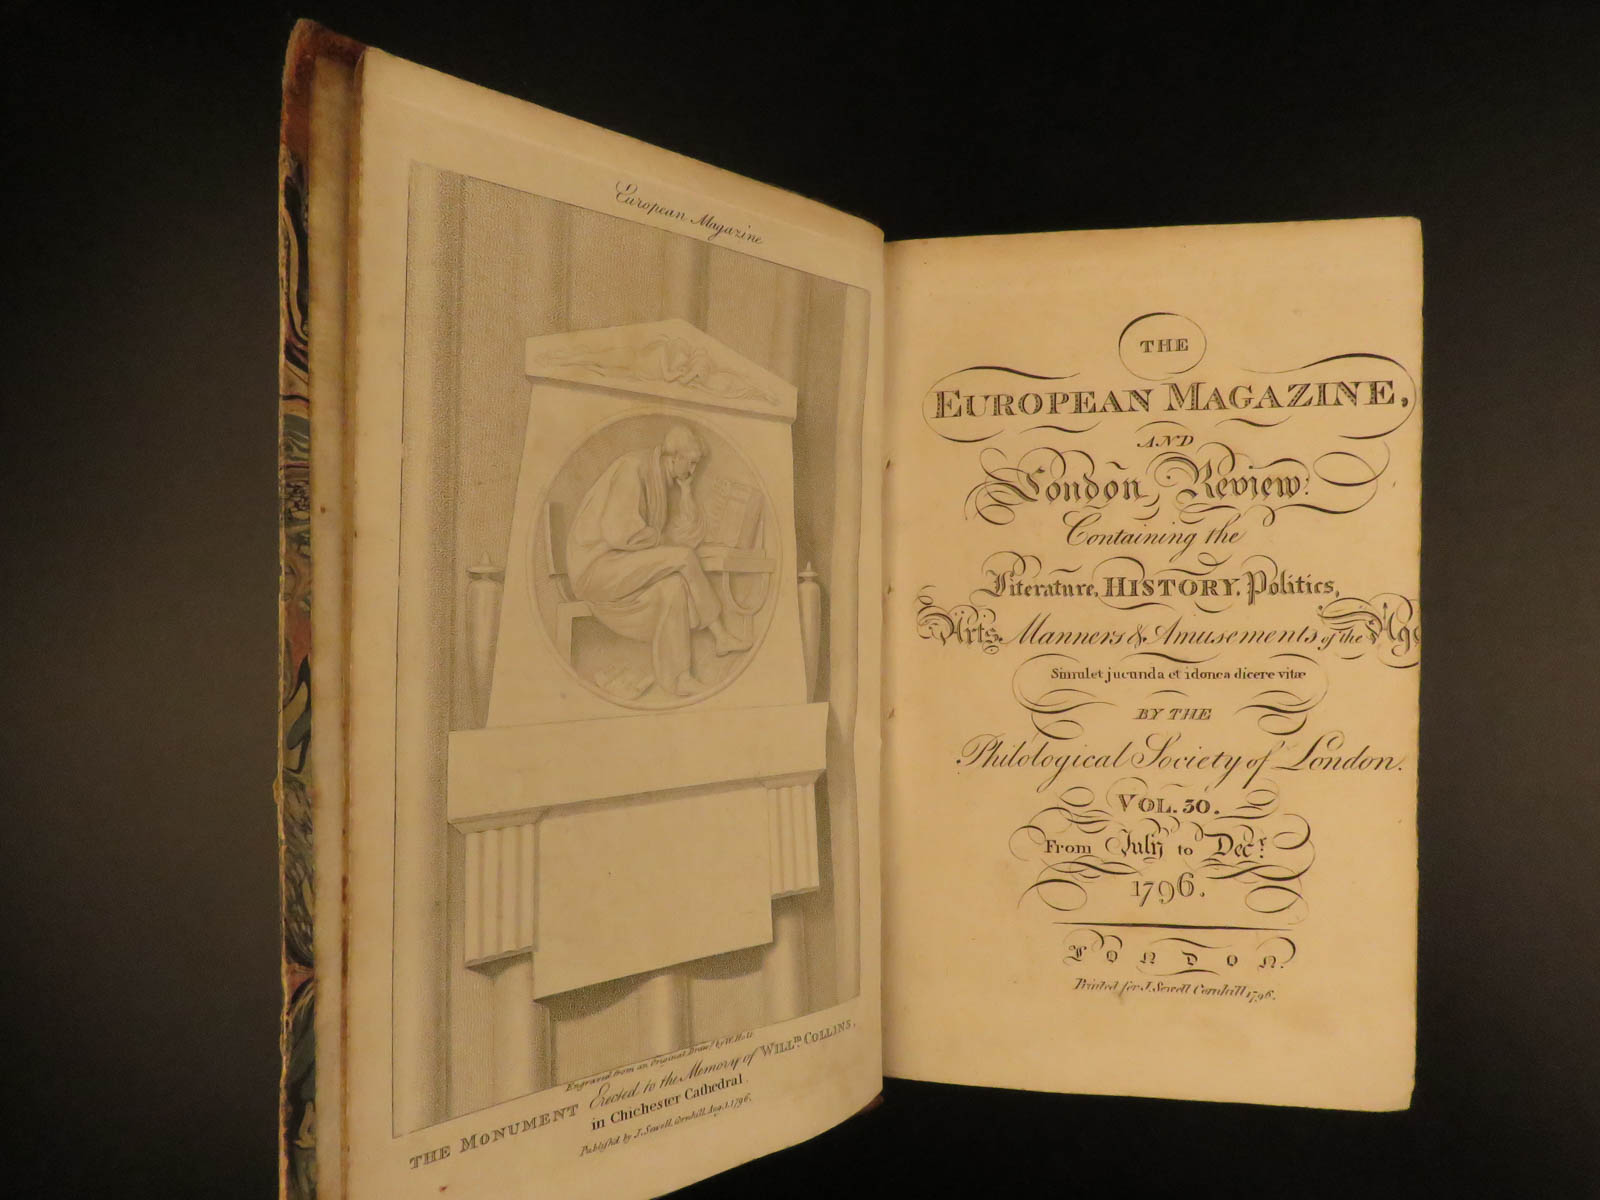 European Magazine
Engraved from an Original Draws. by W. Holl
THE MONUMENT Erected to the Memory of WILLM. COLLINS,
in Chichester Cathedral.
Publish'd by J. Sewell, Cornhill, Aug. 1. 1796.
THE
EUROPEAN MAGAZINE,
AND
London Review;
Containing the
Literature, HISTORY, Politics,
Arts, Manners & Amusements of the Age
Simul et jucunda et idonea dicere vitæ
BY THE
Philological Society of London.
VOL. 30.
From July to Decr.
1796.
LONDON.
Printed for J. Sewell Cornhill 1796.